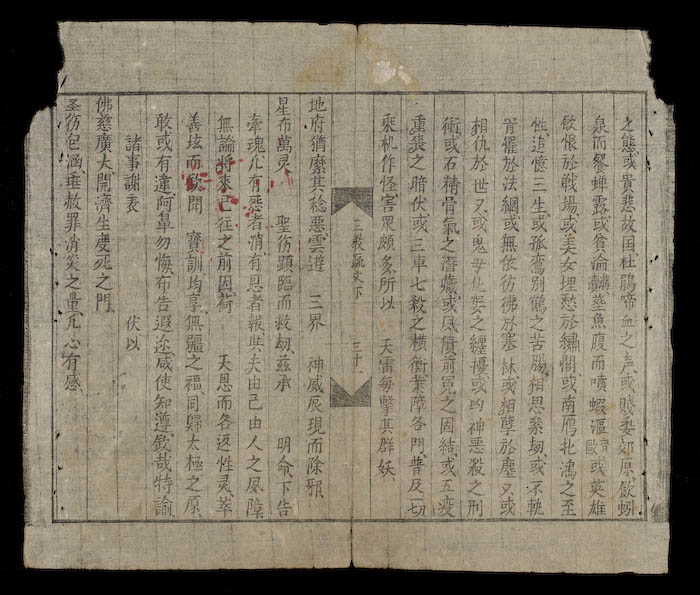 之態或貴悲故国杜鵑啼血之声或賤委郊原飲蚓
泉而餐蟬露或貧淪葬魚腹而噴蝦漚或英雄
飲恨於戰場或美女埋愁於繡閣或南雁北鴻之至
性追憶三生或孤鸞別鶴之苦腸相思累刼或不軌
胥罹於法網或無依彷彿於寒林或相孽於塵又或
相仇於世又或鬼母他婆之纏擾或凶神惡殺之刑
衝或石精骨氣之潛藏或夙債前冤之固結或五瘟
重喪之暗伏或三車七殺之橫衝業障各門普及一切
乘机作怪害眾頗多所以 天雷每擊其群妖
三教疏文下
三十一
地府猶縻其稔惡雲遊 三界 神威辰現而除邪
星布萬灵 聖仿顕臨而救劫茲承 明命下告
幸魂凢有怨者消有恩者報與夫由己由人之夙障
無論將來已往之前因荷 天恩而各返性灵萃
善坛而歆聞 寶訓均享無疆之福同歸太極之原
敢或有違阿鼻勿悔布告遐迩咸使知遵欽哉特諭
諸事謝表 伏以
佛慈廣大開濟生度死之門
圣仿包涵垂救罪消災之量凢心有感